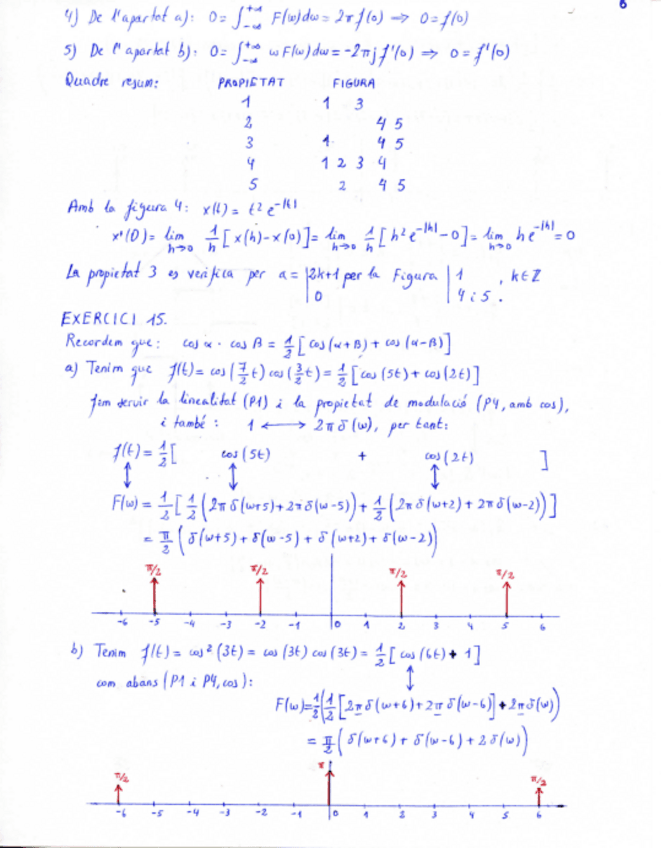 6
4) De l'apartat a): 0 = ∫_{-∞}^{+∞} F(ω)dω = 2π f(0) ⇒ 0 = f(0)
5) De l'apartat b): 0 = ∫_{-∞}^{+∞} ω F(ω)dω = -2πj f'(0) ⇒ 0 = f'(0)
Quadre resum: PROPIETAT FIGURA
1 1 3
2 4 5
3 1 4 5
4 1 2 3 4
5 2 4 5
Amb la figura 4: x(t) = t² e^{-|t|}
x'(0) = lim_{h→0} 1/h [x(h)-x(0)] = lim_{h→0} 1/h [h² e^{-|h|} - 0] = lim_{h→0} h e^{-|h|} = 0
La propietat 3 es verifica per a = | 2k+1 per la Figura | 1 , k∈ℤ
0 4 i 5 .
EXERCICI 15.
Recordem que: cos α · cos β = 1/2 [cos(α+β) + cos(α-β)]
a) Tenim que f(t) = cos(7/2 t) cos(3/2 t) = 1/2 [cos(5t) + cos(2t)]
fem servir la linealitat (P1) i la propietat de modulació (P4, amb cos),
i també: 1 ⟷ 2π δ(ω), per tant:
f(t) = 1/2 [ cos(5t) + cos(2t) ]
↕ ↕ ↕
F(ω) = 1/2 [ 1/2 (2π δ(ω+5) + 2π δ(ω-5)) + 1/2 (2π δ(ω+2) + 2π δ(ω-2)) ]
= π/2 ( δ(ω+5) + δ(ω-5) + δ(ω+2) + δ(ω-2) )
π/2 π/2 π/2 π/2
-6 -5 -4 -3 -2 -1 0 1 2 3 4 5 6
b) Tenim f(t) = cos²(3t) = cos(3t) cos(3t) = 1/2 [cos(6t) + 1]
com abans (P1 i P4, cos): ↕
F(ω) = 1/2 ( 1/2 [2π δ(ω+6) + 2π δ(ω-6)] + 2π δ(ω) )
= π/2 ( δ(ω+6) + δ(ω-6) + 2 δ(ω) )
π/2 π π/2
-6 -5 -4 -3 -2 -1 0 1 2 3 4 5 6